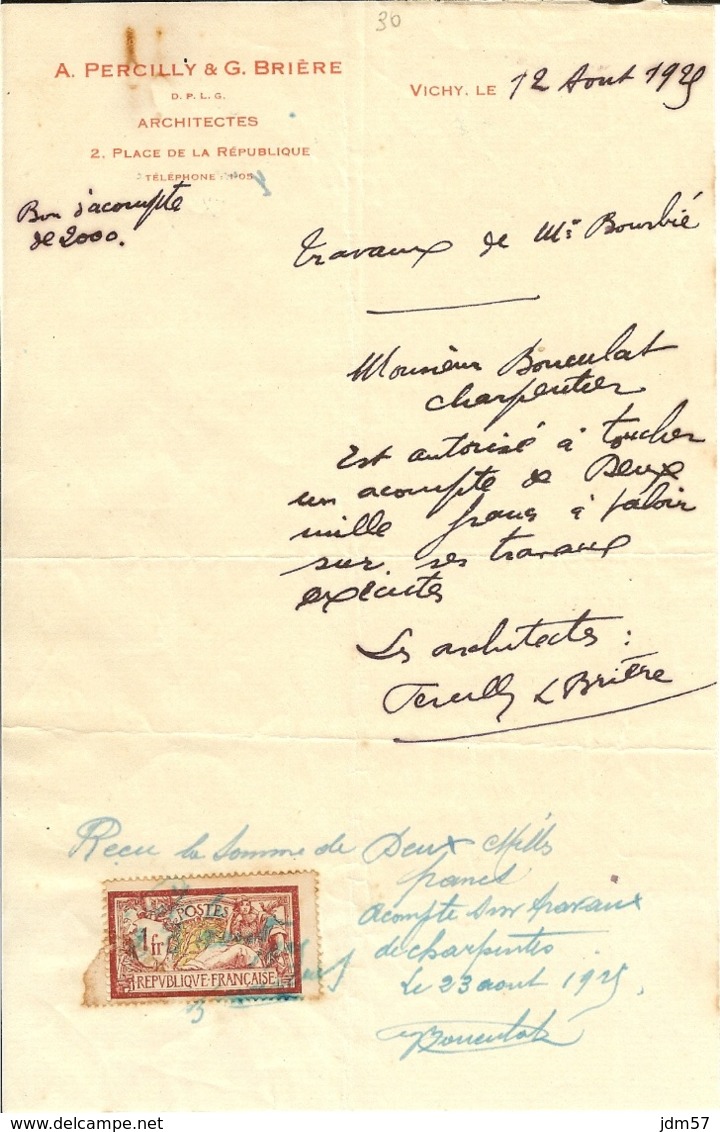 30
A. PERCILLY & G. BRIÈRE
D. P. L. G.
ARCHITECTES
2, PLACE DE LA RÉPUBLIQUE
TÉLÉPHONE :
VICHY, LE 12 Aout 1925
Bon d'acompte
de 2000.
travaux de Mr Bourbié
Monsieur Bouculat
charpentier
Est autorisé à toucher
un acompte de Deux
mille francs à valoir
sur ses travaux
exécutés
Les architectes :
Percilly & Brière
Recu la Somme de Deux Mills
francs
acompte sur travaux
de charpentes
Le 23 aout 1925
Bouculat
POSTES
1 fr
REPVBLIQVE FRANÇAISE
delcampe.net
jdm57